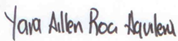 Yara Aillen Roca Aguilera